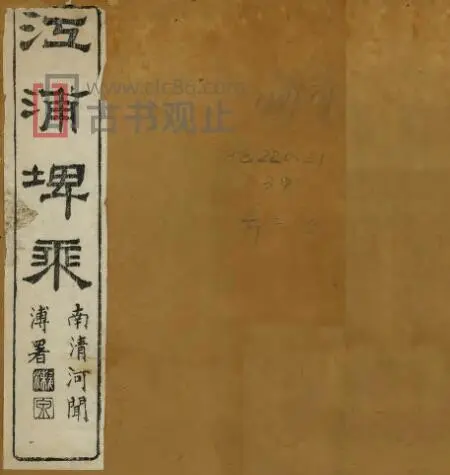 江浦埤乘
南清河聞
溥署
www.clc86.com
古书观止